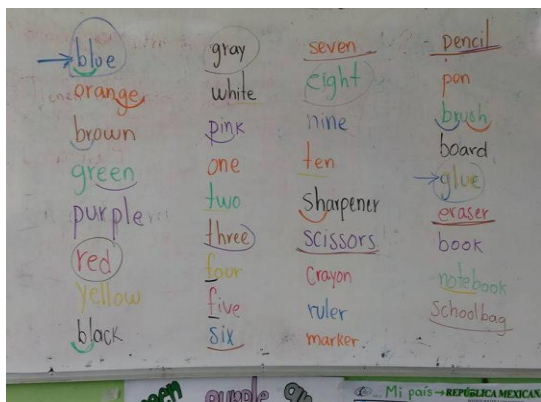 blue
orange
brown
green
purple
red
yellow
black
gray
white
pink
one
two
three
four
five
six
seven
eight
nine
ten
sharpener
scissors
crayon
ruler
marker
pencil
pen
brush
board
glue
eraser
book
notebook
schoolbag
purple
Mi país → REPÚBLICA MEXICANA